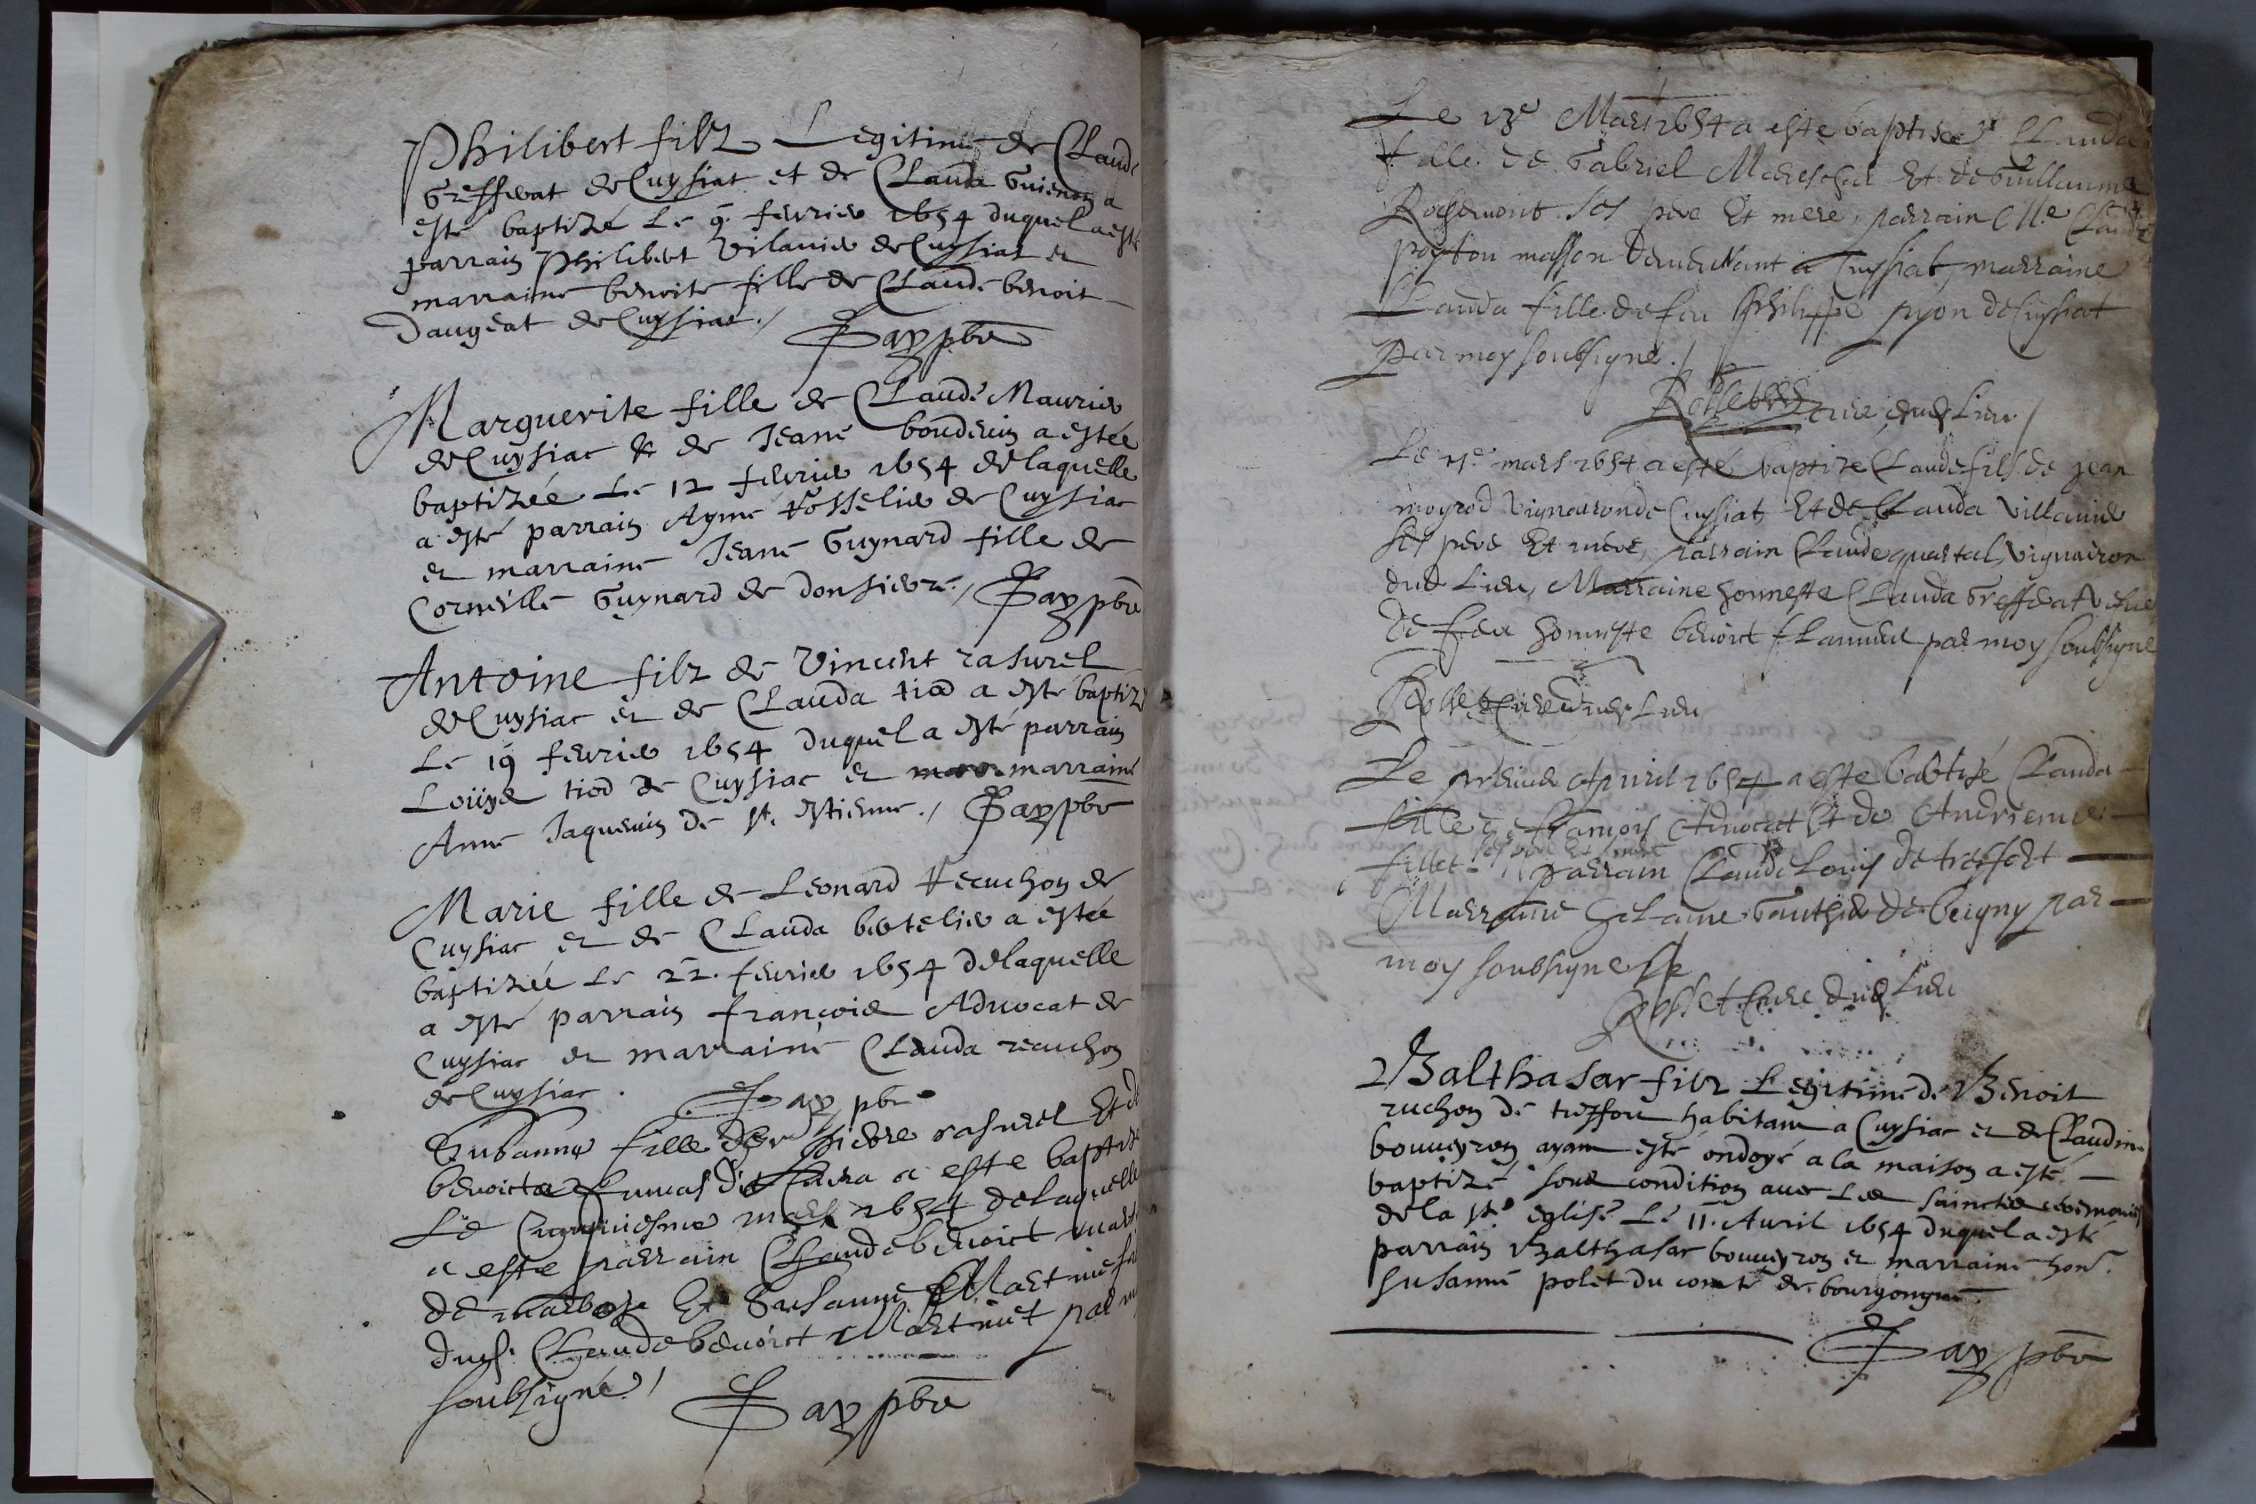 Philibert filz Legitime de Claude
Greffeat de Cuysiat et de Clauda Guienon a
esté baptizé Le 9. feurier 1654 duquel a esté
parrain Philibert Vilanier de Cuysiat et
marraine benoite fille de Claude benoit
Daugeat de Cuysiat./ Pay pbre
Marguerite fille de Claude Maurier
de Cuysiat & de Jeane bonderin a estée
baptizée Le 12 feurier 1654 de laquelle
a esté parrain Aymé Rosselier de Cuysiat
et marraine Jeane Guynard fille de
Corneille Guynard de Donsieure./ Pay pbre
Antoine filz de Vincent rasurel
de Cuysiat et de Clauda tiod a esté baptizé
Le 19 feurier 1654 duquel a esté parrain
Loüys tiod de Cuysiat et marraine
Anne Jaquemin de st. estienne./ Pay pbre
Marie fille de Leonard Recuchon de
Cuysiat et de Clauda bertelier a estée
baptizée Le 22. feurier 1654 de laquelle
a esté parrain françois Aduocat de
Cuysiat et marraine Clauda recuchon
de Cuysiat. Pay pbre
Susanne fille de pierre rasurel Et de
benoicte dit a este baptizé
Le mars 1654 de laquelle
a este parrain Claude benoict
de Et Susanne
dud. Claude benoict Martinet par
soubsigné / Pay pbre
Le 13e Mars 1654 a este baptisée Clauda
fille de Gabriel Mareschal Et de Guillauma
Rochemont ses pere Et mere, parrain Claude
poyton masson demeurant a Cuysiat, marraine
Clauda fille de feu Philippe pyon de Cuysiat
par moy soubsigné./
Rosset Curé dud Lieu /
Le mars 1654 a esté baptizé Claude fils de jean
moyrod vigneron de Cuysiat Et de Clauda Villanier
ses pere Et mere, parrain Claude quartal, vigneron
dud Lieu, Marraine honneste Clauda Greffeat vefue
De feu honneste benoict par moy soubsigné
Rosset Curé dud Lieu
Le premier Apuril 1654 a este babtisé Clauda
fille de françois Aduocat Et de Andrienne
fillet ses pere Et mere parrain Claude Louis de treffort
Marraine helaine Gauthier de beigny par
moy soubsigne
Rosset Curé dud Lieu
Balthasar filz Legitime de Benoit
ruchon de treffort habitant a Cuysiat et de Claudine
bouueyron ayant esté ondoyé a la maison a esté
baptizé sous condition auec Les sainctes ceremonies
de la ste eglise Le 11. Auril 1654 duquel a esté
parrain Balthasar bouueyron et marraine hon.
Susanne polet du comté de bourgongne.
Pay pbre